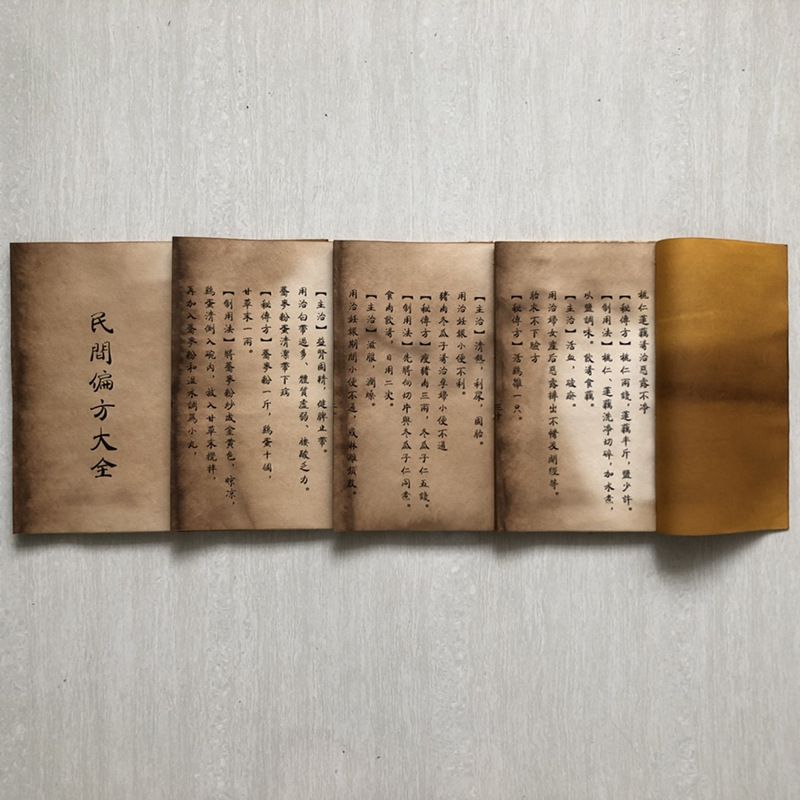 桃仁蓮藕湯治惡露不净
【秘傳方】桃仁兩錢，蓮藕半斤，鹽少許。
【制用法】桃仁、蓮藕洗净切碎，加水煮，
以鹽調味。飲湯食藕。
【主治】活血，破瘀。
用治婦女産后惡露排出不暢及閉經等。
胎衣不下驗方
【秘傳方】活鷄雛一只。
【主治】清熱，利尿，固胎。
用治妊娠小便不利。
豬肉冬瓜子湯治孕婦小便不通
【秘傳方】瘦豬肉三兩，冬瓜子仁五錢。
【制用法】先將肉切片與冬瓜子仁同煮。
食肉飲湯，日用二次。
【主治】滋，潤燥。
用治妊娠期間小便不通，或淋頻數。
【主治】益腎固精，健脾止帶。
用治白帶過多、體質虛弱、腰酸乏力。
蕎麥粉蛋清帶下病
【秘傳方】蕎麥粉一斤，鷄蛋十個，
甘草末一兩。
【制用法】將蕎麥粉炒成金黃色，晾凉，
鷄蛋清倒入碗内，放入甘草末攪拌，
再加入蕎麥粉和溫水調爲小丸，
民間偏方大全